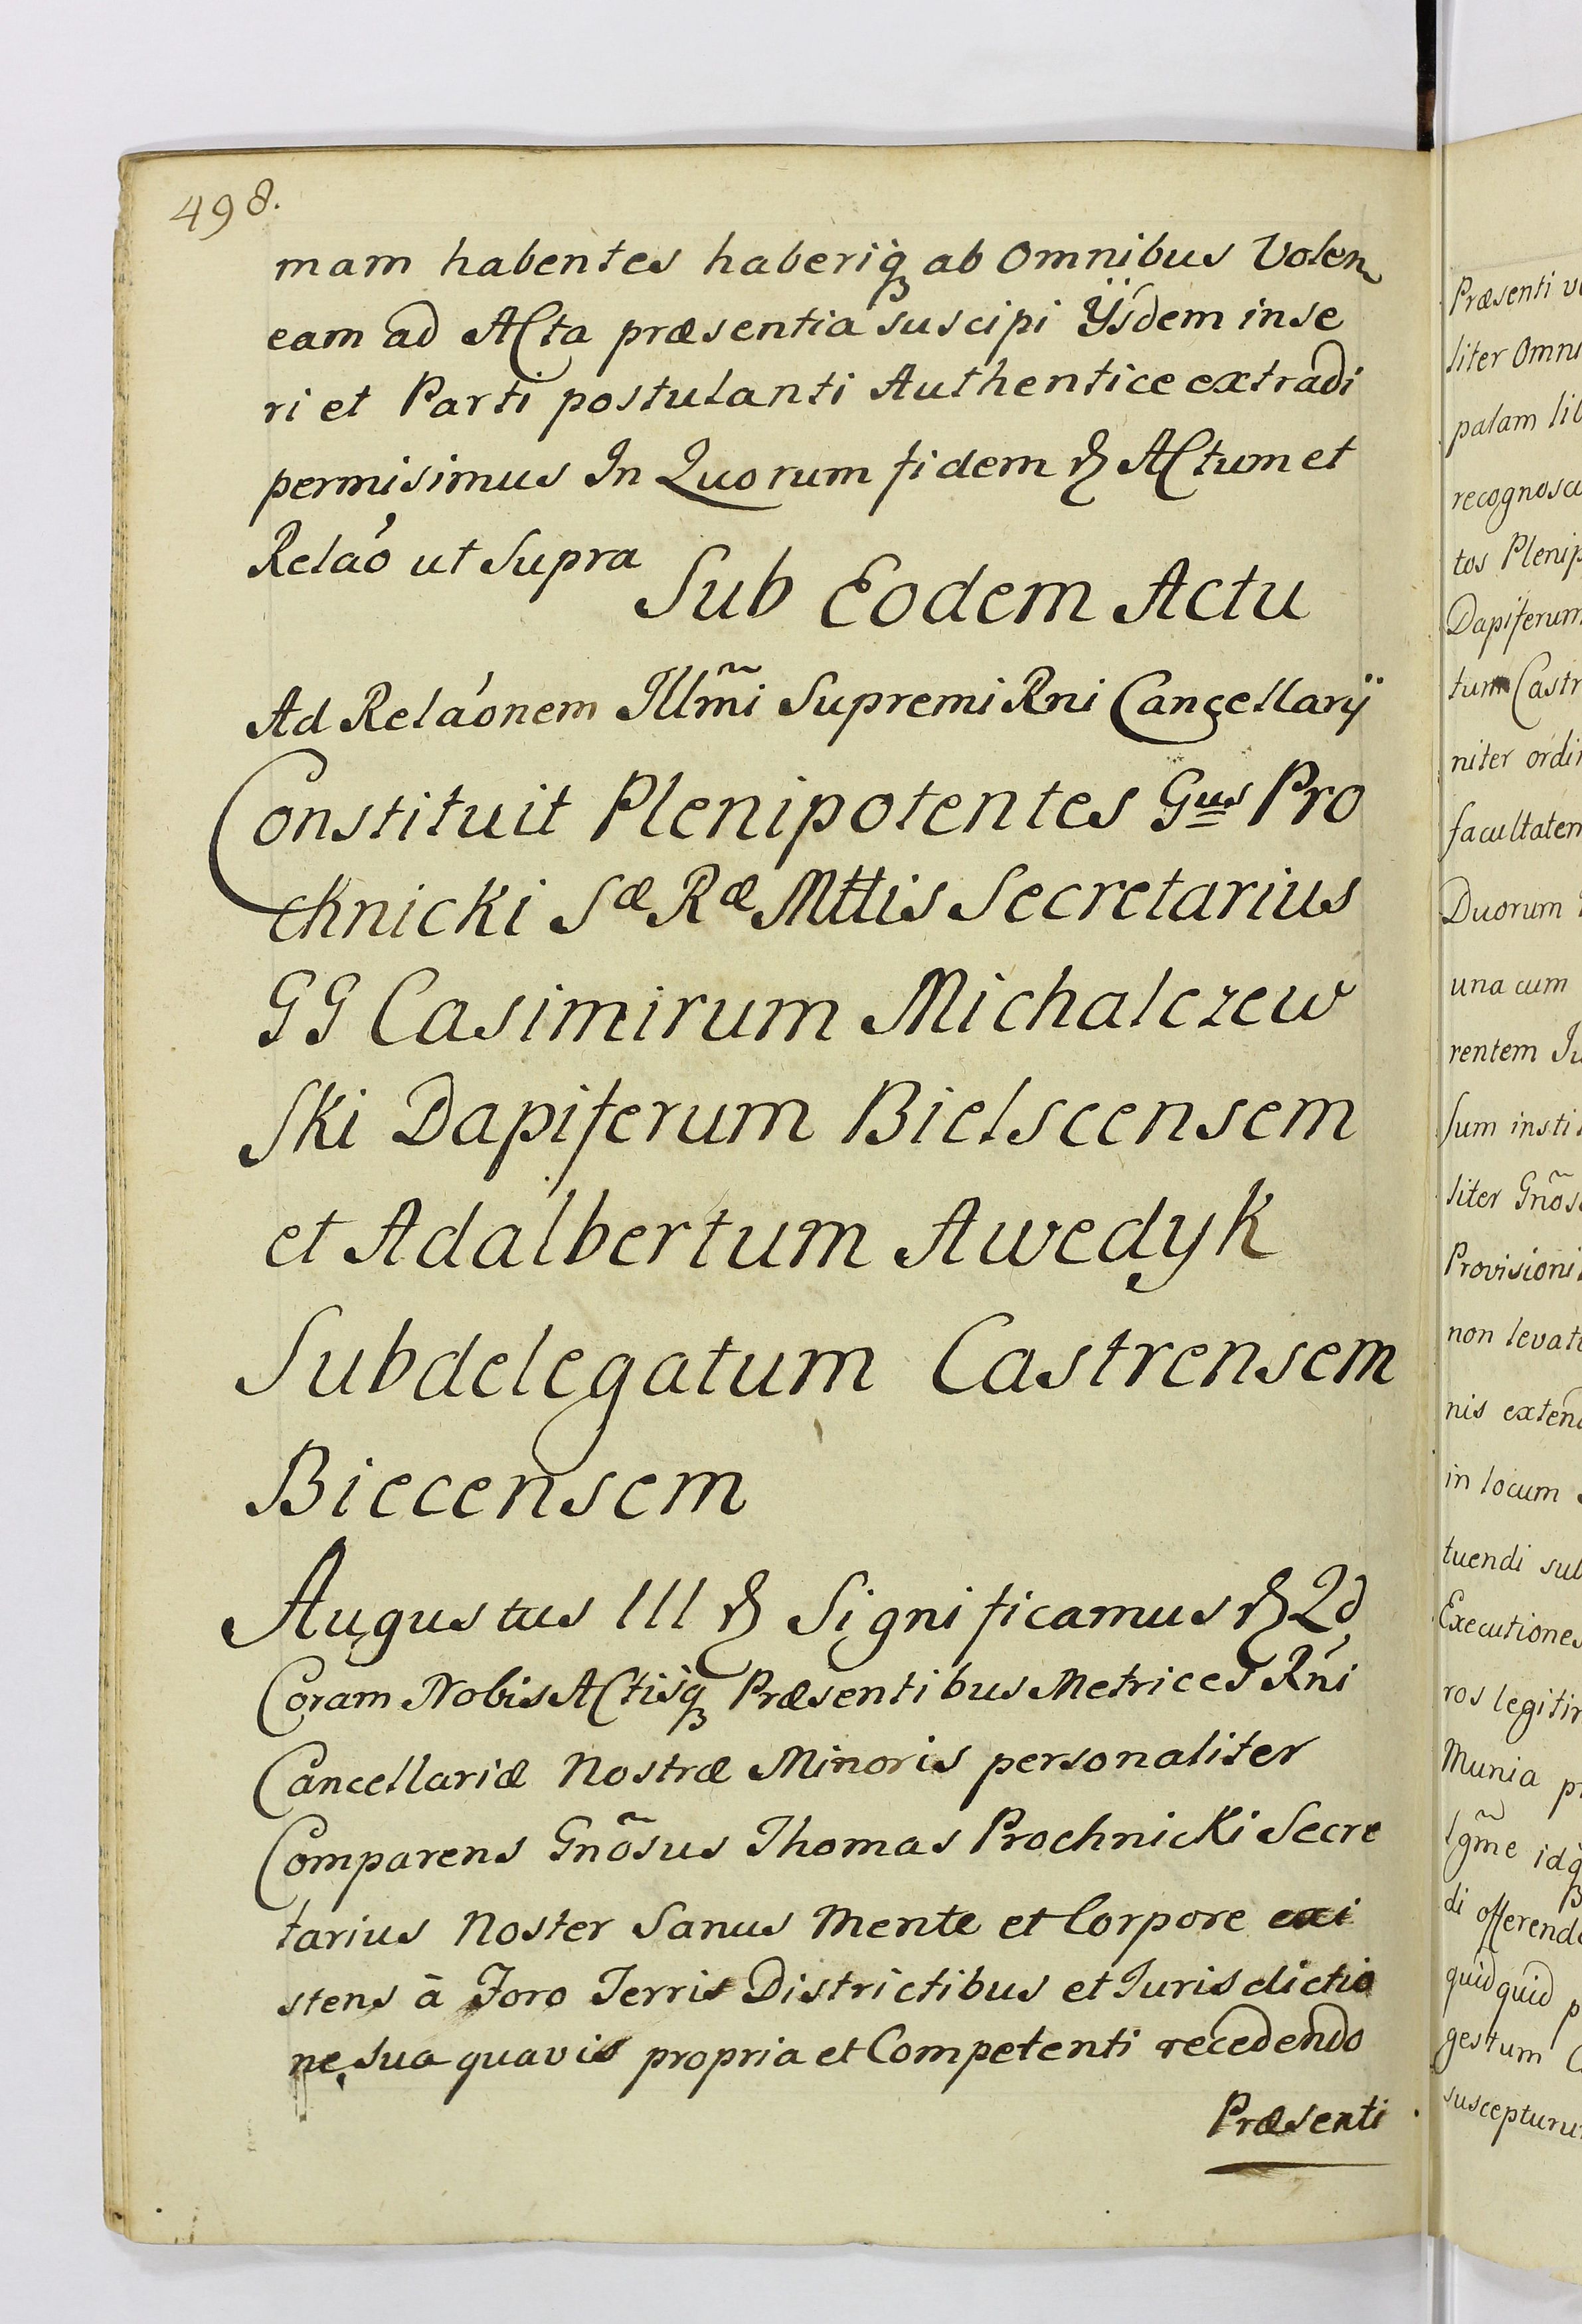 498.
mam habentes haberiq₃ ab Omnibus Volen
eam ad Acta præsentia suscipi Ÿsdem inse
ri et Parti postulanti Authentice extradi
permisimus In Quorum fidem & Actum et
Relaó ut Supra
Sub Eodem Actu
Ad Relaónem Illm̃i Supremi Rni Cancellarÿ
Constituit Plenipotentes Gus Pro
chnicki Sæ Ræ Mttis Secretarius
GG Casimirum Michalczew
Ski Dapiferum Bielscensem
et Adalbertum Awedyk
Subdelegatum Castrensem
Biecensem
Augustus III & Significamus & Qd
Coram Nobis Actisq₃ Præsentibus Metrices Rńi
Cancellariæ Nostræ Minoris personaliter
Comparens Gnõsus Thomas Prochnicki Secre
tarius Noster Sanus Mente et Corpore exi
stens à Foro Terris Districtibus et Jurisdictio
ne sua quavis propria et Competenti recedendo
Præsenti
Præsenti
liter Omni
palam lib
recognosc
tos Plenip
Dapiferum
tum Castr
niter ordi
facultatem
Duorum
una cum
rentem Ju
sum insti
liter Gnõs
Provisioni
non levat
nis exten
in locum
tuendi sub
Executiones
ros legitim
Munia p
lgm̃e idq₃
di offerend
quidquid p
gestum
suscepturu